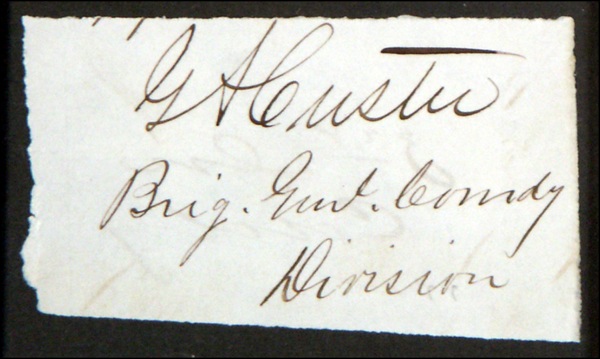 G A Custer
Brig. Genl. Comdg
Division